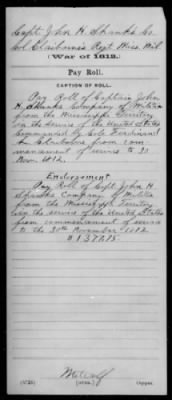 Capt. John H. Shanks Co.
Col. Claiborne's Regt. Miss. Mil.
(War of 1812.)
Pay Roll.
CAPTION OF ROLL.
Pay Roll of Captain John
H Shanks Company of Militia
from the Mississippi Territory
in the service of the United States
Commanded by Col. Ferdinand
L. Claiborne from com-
mencement of service to 30
Nov. 1812.
Endorsement
Pay Roll of Capt. John H
Shanks Company of Militia
from the Mississippi Territory
in the service of the United States
from commencement of service
to the 30th November 1812.
Metcalf
Copyist.